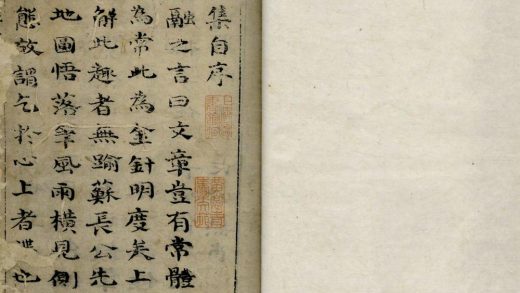 集自序
融之言曰文章豈有常體
為常此為金針明度矣上
解此趣者無踰蘇長公先
地圓悟落筆風雨橫見側
態故謂乞於心上者也